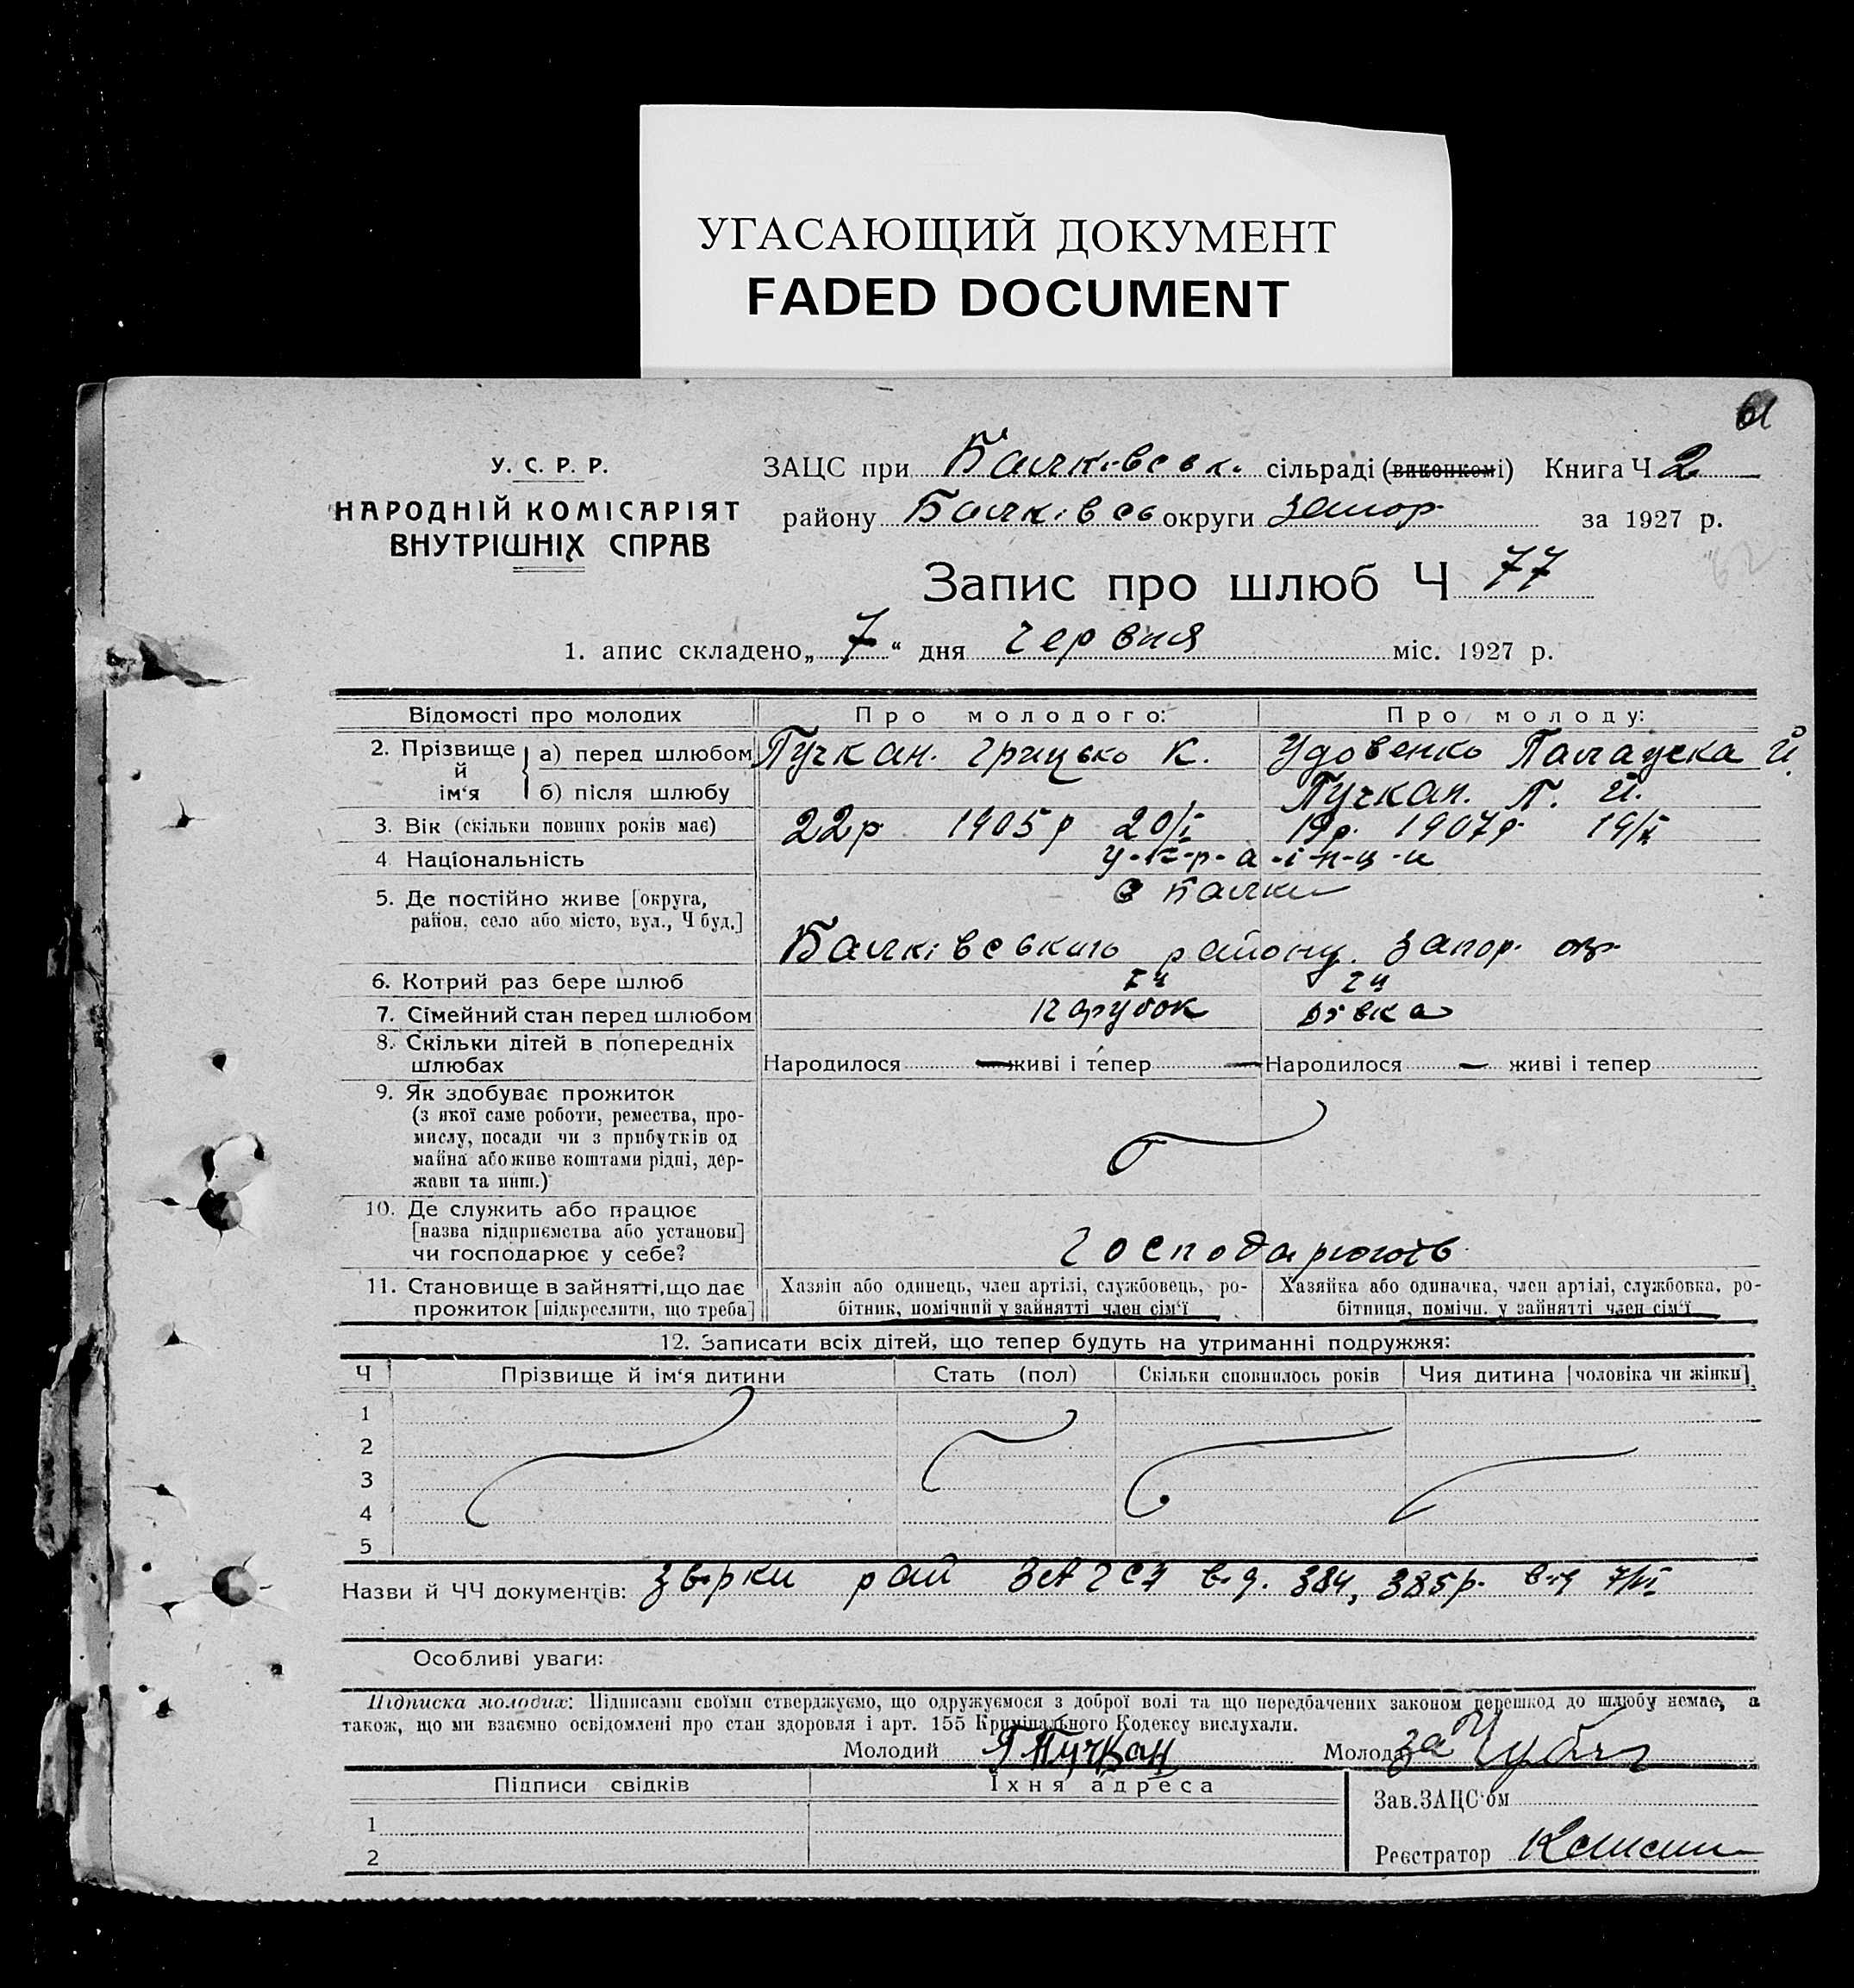 УГАСАЮЩИЙ ДОКУМЕНТ
FADED DOCUMENT
61
У. С. Р. Р.
НАРОДНІЙ КОМІСАРІЯТ
ВНУТРІШНІХ СПРАВ
ЗАЦС при Балківськ. сільраді (виконкомі) Книга Ч 2
району Балківсь округи Запор. за 1927 р.
62
Запис про шлюб Ч 77
1. апис складено „ 7 “ дня червня міс. 1927 р.
Відомості про молодих Про молодого: Про молоду:
2. Прізвище й ім‘я а) перед шлюбом Пучкан. Грицько К. Удовенко Палажка Й.
б) після шлюбу Пучкан. П. Й.
3. Вік (скільки повних років має) 22р 1905р 20/I 19р. 1907р.
4 Національність у-к-р-а-і-н-ц-и
5. Де постійно живе [округа, с Балки
район, село або місто, вул., Ч буд.]
Балківського району. Запор. окр.
6. Котрий раз бере шлюб
7. Сімейний стан перед шлюбом парубок дівка
8. Скільки дітей в попередніх
шлюбах Народилося — живі і тепер — Народилося — живі і тепер
9. Як здобуває прожиток
(з якої саме роботи, ремества, про-
мислу, посади чи з прибутків од
майна або живе коштами рідні, дер-
жави та инш.)
10. Де служить або працює
[назва підприємства або установи]
чи господарює у себе? господарюють
11. Становище в зайнятті, що дає Хазяїн або одинець, член артілі, службовець, ро- Хазяйка або одиначка, член артілі, службовка, ро-
прожиток [підкреслити, що треба] бітник, помічний у зайнятті член сім‘ї бітниця, помічн. у зайнятті член сім‘ї
12. Записати всіх дітей, що тепер будуть на утриманні подружжя:
Ч Прізвище й ім‘я дитини Стать (пол) Скільки сповнилось років Чия дитина [чоловіка чи жінки]
1
2
3
4
5
Назви й ЧЧ документів: 384, 385р. від 7/VI
Особливі уваги:
Підписка молодих: Підписами своїми стверджуємо, що одружуємося з доброї волі та що передбачених законом перешкод до шлюбу немає, а
також, що ми взаємно освідомлені про стан здоровля і арт. 155 Кримінального Кодексу вислухали.
Молодий Г Пучкан Молода за
Підписи свідків Їхня адреса
Зав. ЗАЦС‘ом
1
2
Реєстратор